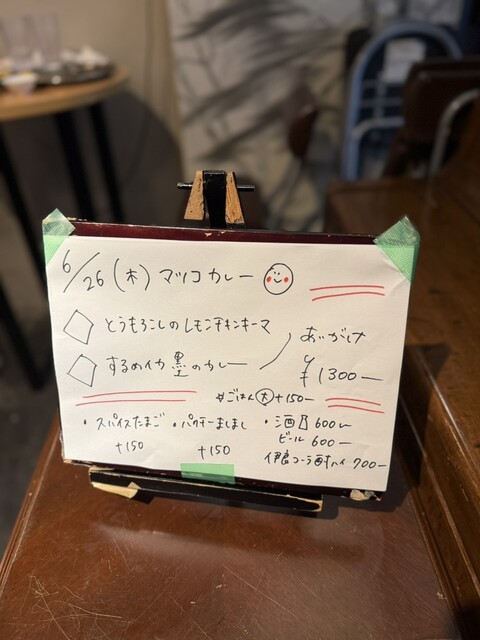 6/26(木)マツコカレー
とうもろこしのレモンチキンキーマ
するめイカ墨のカレー
あいがけ
¥1300ー
#ごはん大+150ー
・スパイスたまご
+150
・パクチーましまし
+150
・酒 600ー
ビール 600ー
伊良コーラ酎ハイ 700ー